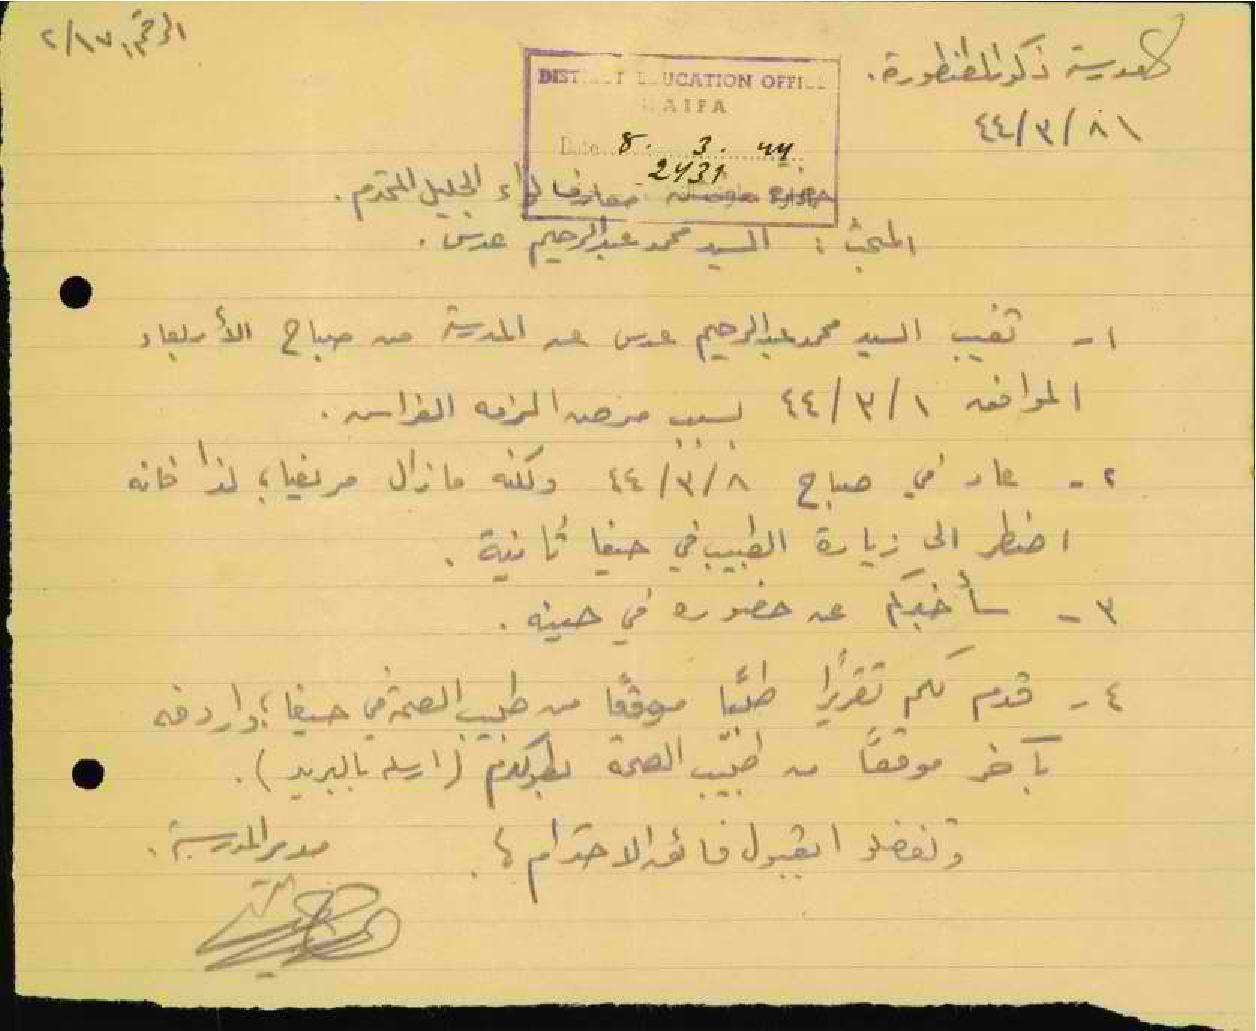 الرقم ٢/١٧
مدرسة ذكور الطنطورة.
٤٤/٣/٨
DISTRICT EDUCATION OFFICE
HAIFA
Date 8. 3. 44
2431
معارف لواء الجليل المحترم.
المبحث: السيد محمد عبدالرحيم عدس.
١- تغيب السيد محمد عبدالرحيم عدس عن المدرسة من صباح الأربعاء
الموافق ٤٤/٣/١ بسبب مرض الزمه الفراش.
٢- عاد في صباح ٤٤/٣/٨ ولكنه مازال مريضا، لذا فانه
اضطر الى زيارة الطبيب في حيفا ثانية.
٣- سأخبركم عن حضوره في حينه.
٤- قدم لكم تقريرًا طبيًا موقعًا من طبيب الصحة في حيفا، واردفه
بآخر موقعًا من طبيب الصحة بطولكرم (ارسله بالبريد).
وتفضلوا بقبول فائق الاحترام،
مدير المدرسة.